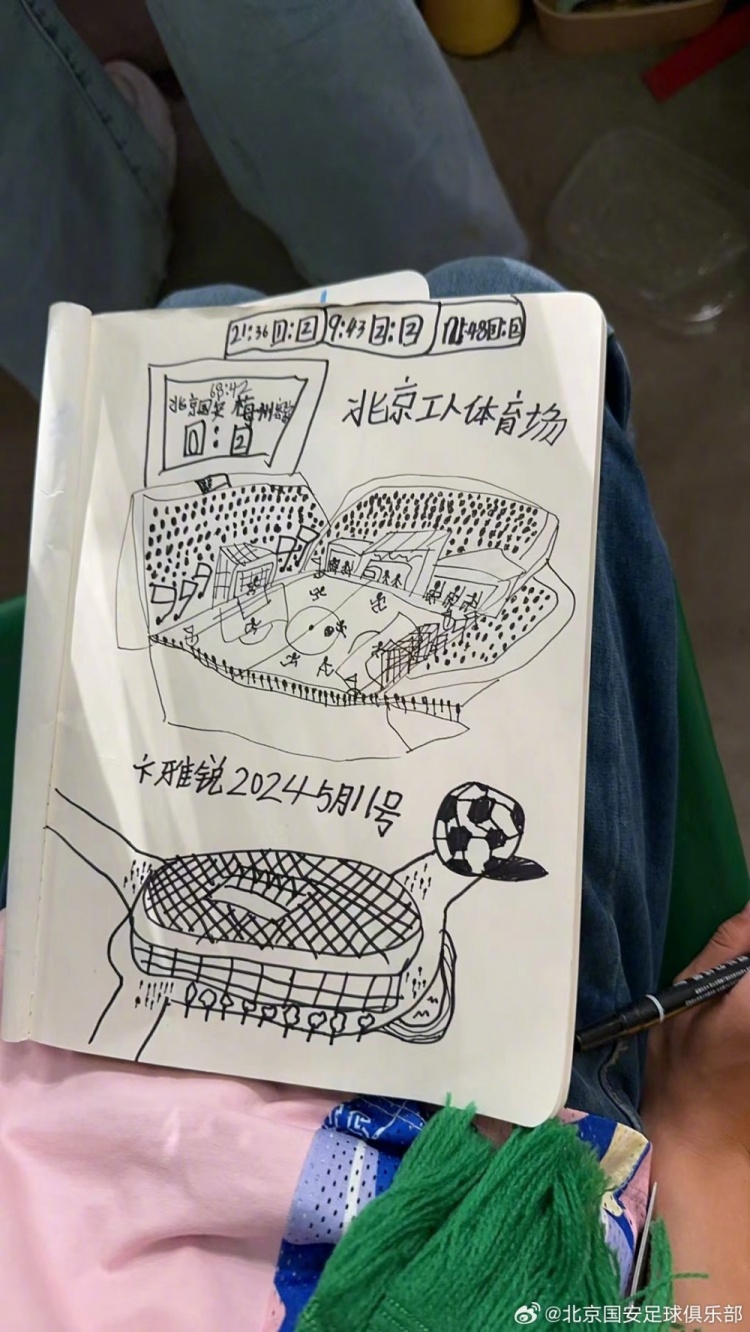 21:36 1:2 9:43 2:2 :48 3:2
68:42
北京国安 梅州客
0:2
北京工人体育场
卞雅锐2024 5月11号
@北京国安足球俱乐部